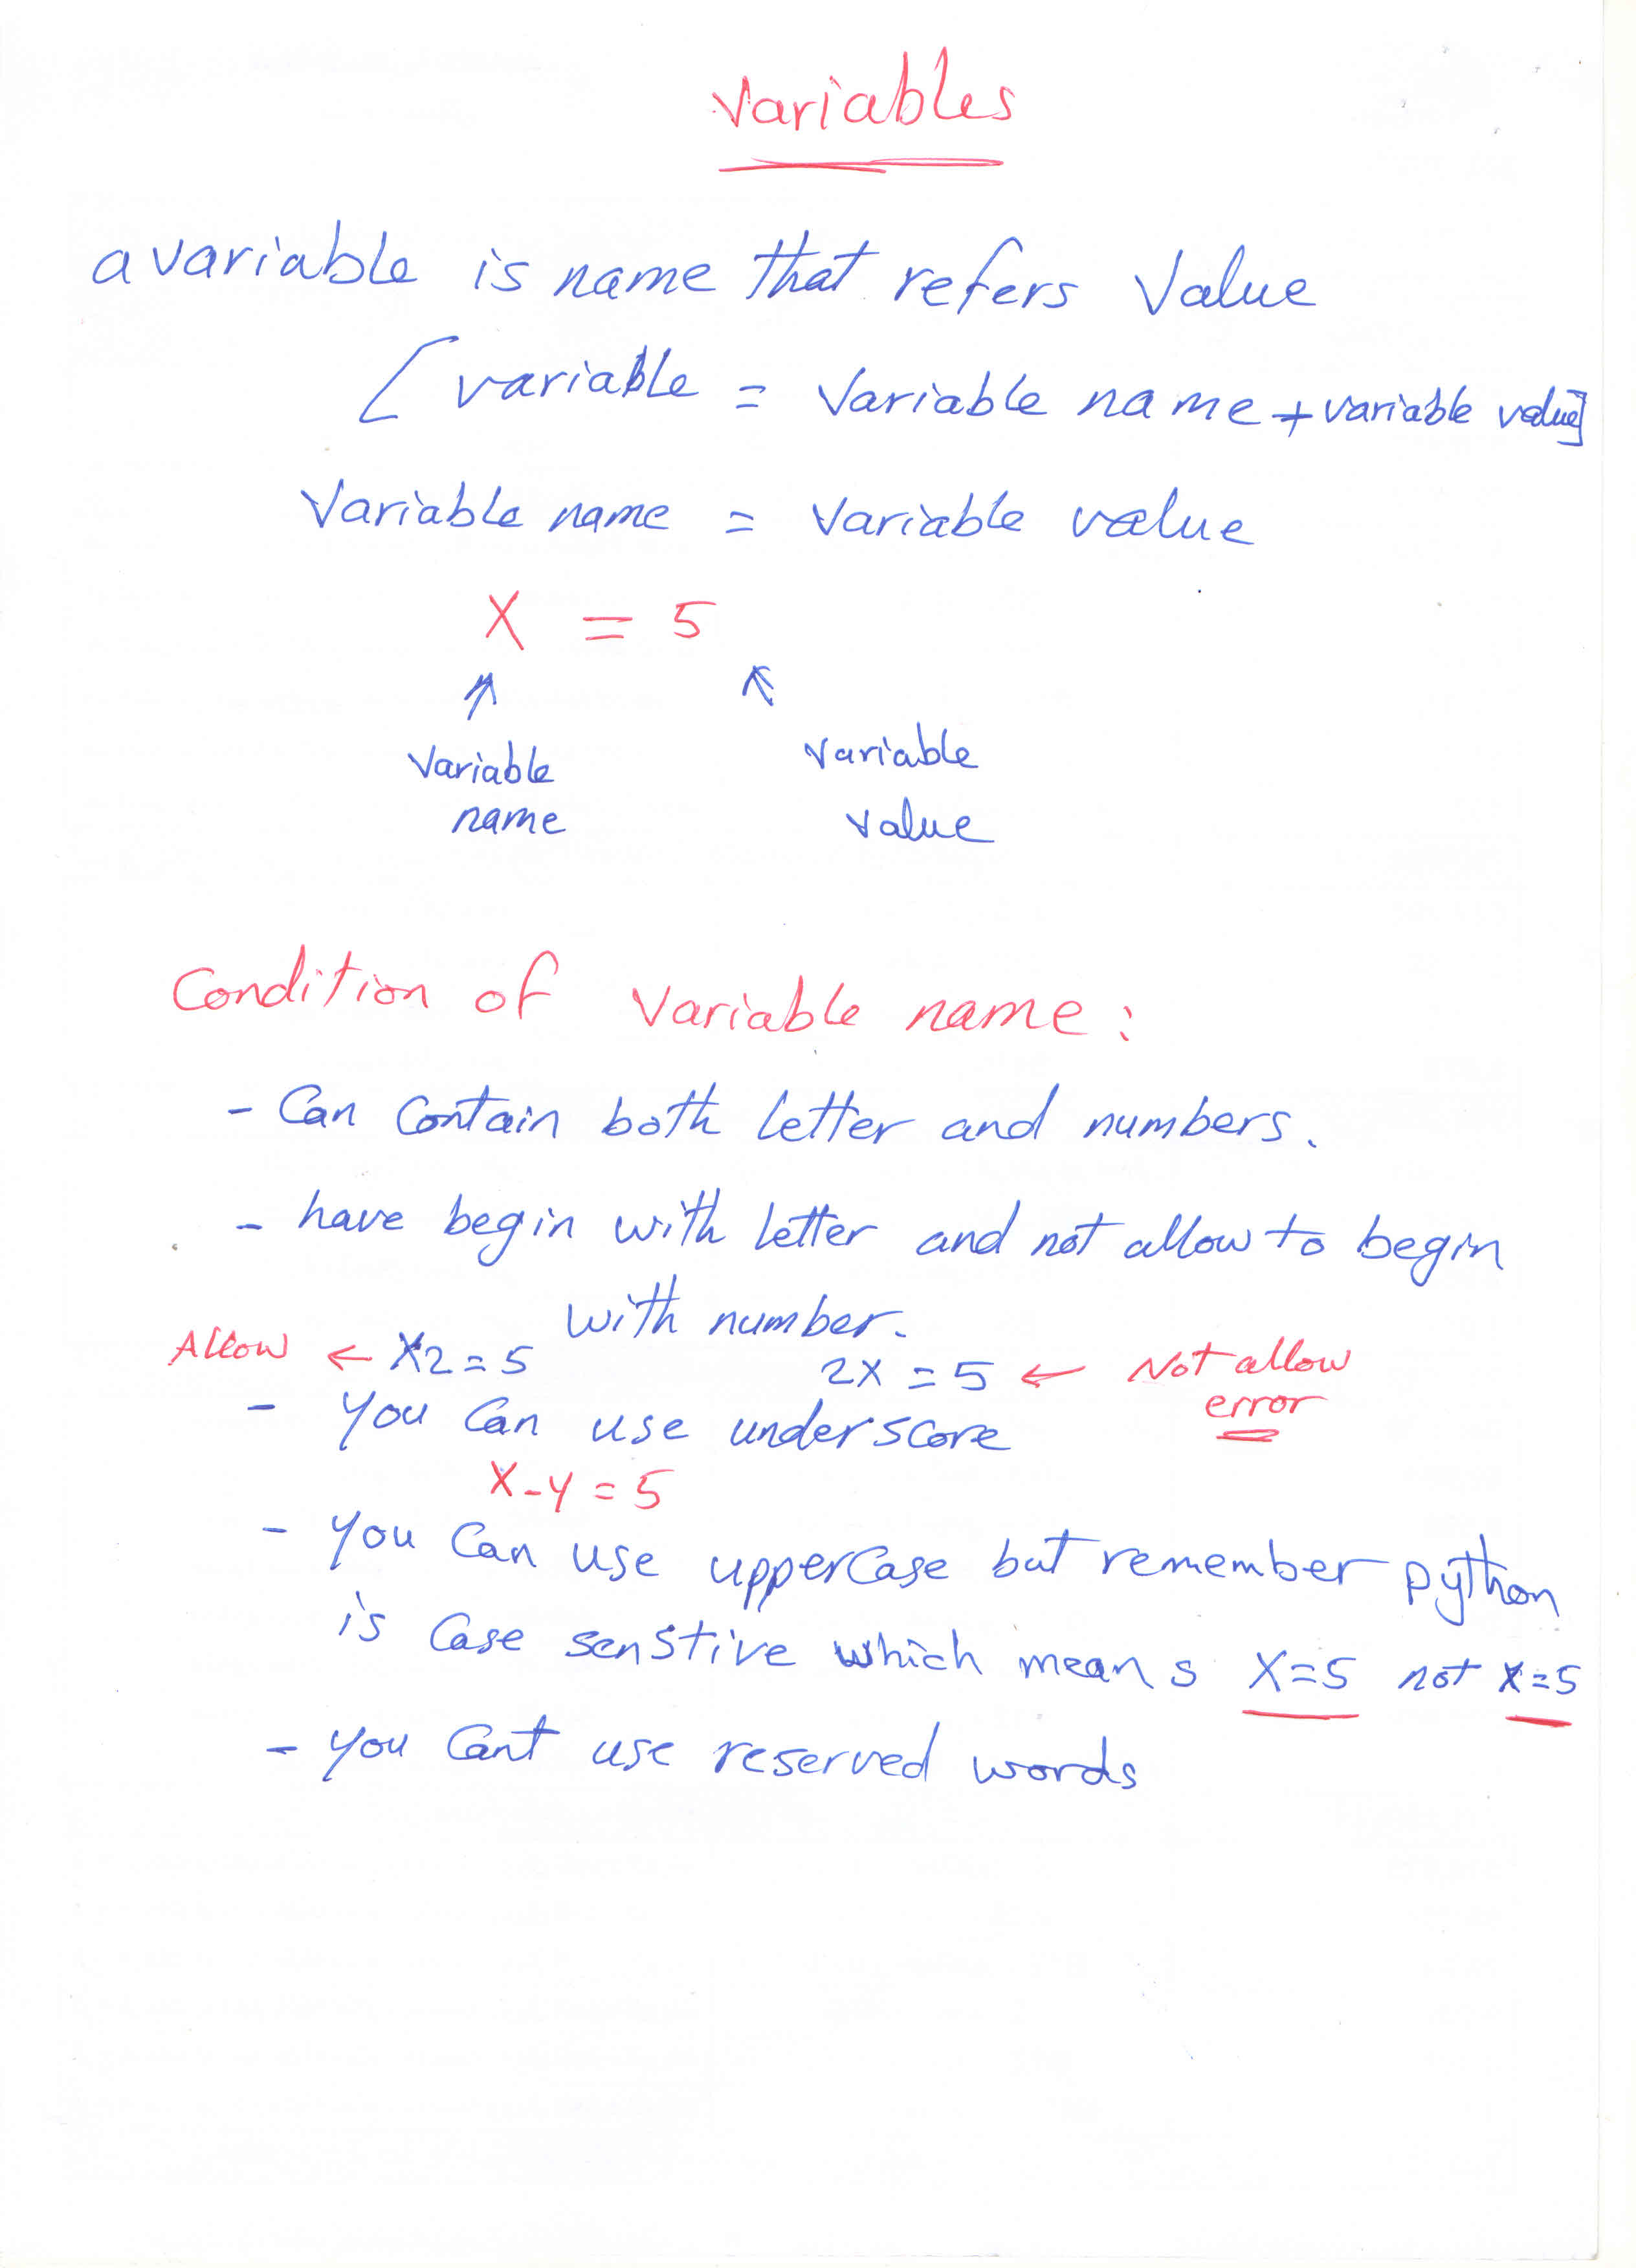 Variables
a variable is name that refers Value
[variable = Variable name + variable value]
Variable name = Variable value
X = 5
Variable name
variable value
Condition of Variable name:
- Can Contain both letter and numbers.
- have begin with letter and not allow to begin
with number.
Allow ← X2 = 5 2X = 5 ← Not allow
error
- you Can use underscore
X_Y = 5
- you Can use upperCase but remember python
is Case senstive which means X=5 not x=5
- you Cant use reserved words